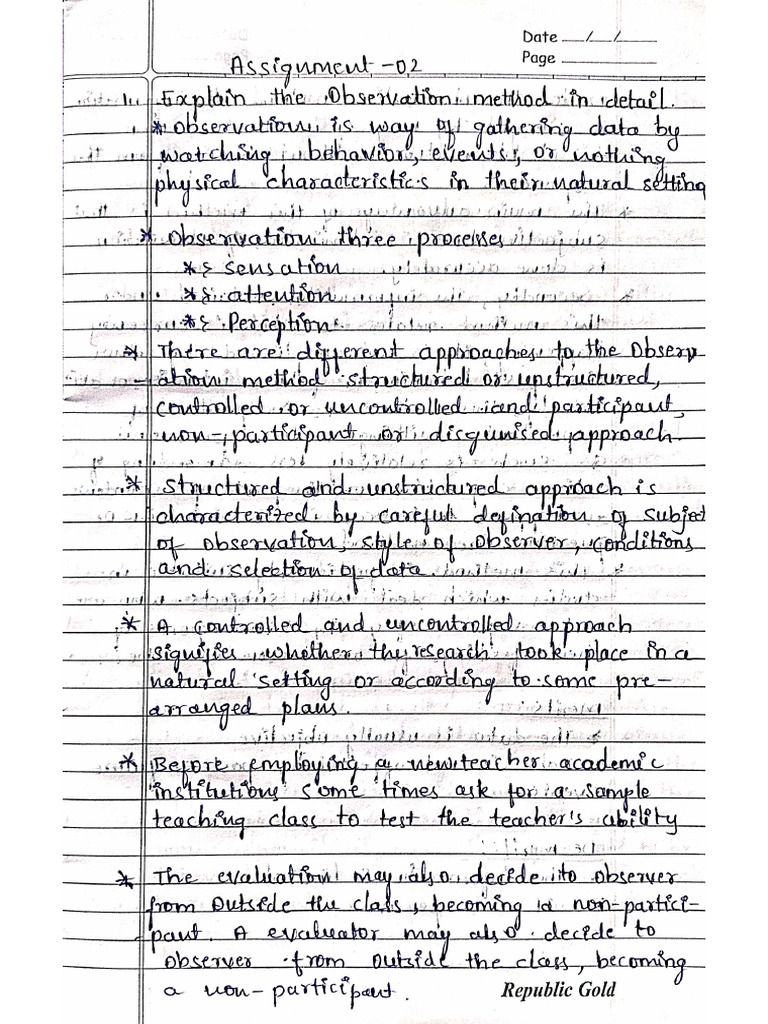 Date __/__/____
Page ________
Assignment -02
1. Explain the Observation method in detail.
* observation is way of gathering data by
watching behavior, events, or nothing
physical characteristics in their natural setting
* Observation three processes
* & sensation
* & attention
* & Perception
* There are different approaches to the Observ
-ation method structured or unstructured,
controlled or uncontrolled and participant,
non-participant or disgunised approach.
* structured and unstructured approach is
characterized by careful defination of subject
of observation, style of observer, conditions
and selection of data.
* A controlled and uncontrolled approach
signifies whether the research took place in a
natural setting or according to some pre-
arranged plans.
* Before employing a new teacher academic
institutions some times ask for a sample
teaching class to test the teacher's ability
* The evaluation may also decide to observer
from outside the class, becoming a non-partici-
pant. A evaluator may also decide to
observer from outside the class, becoming
a non-participant.
Republic Gold